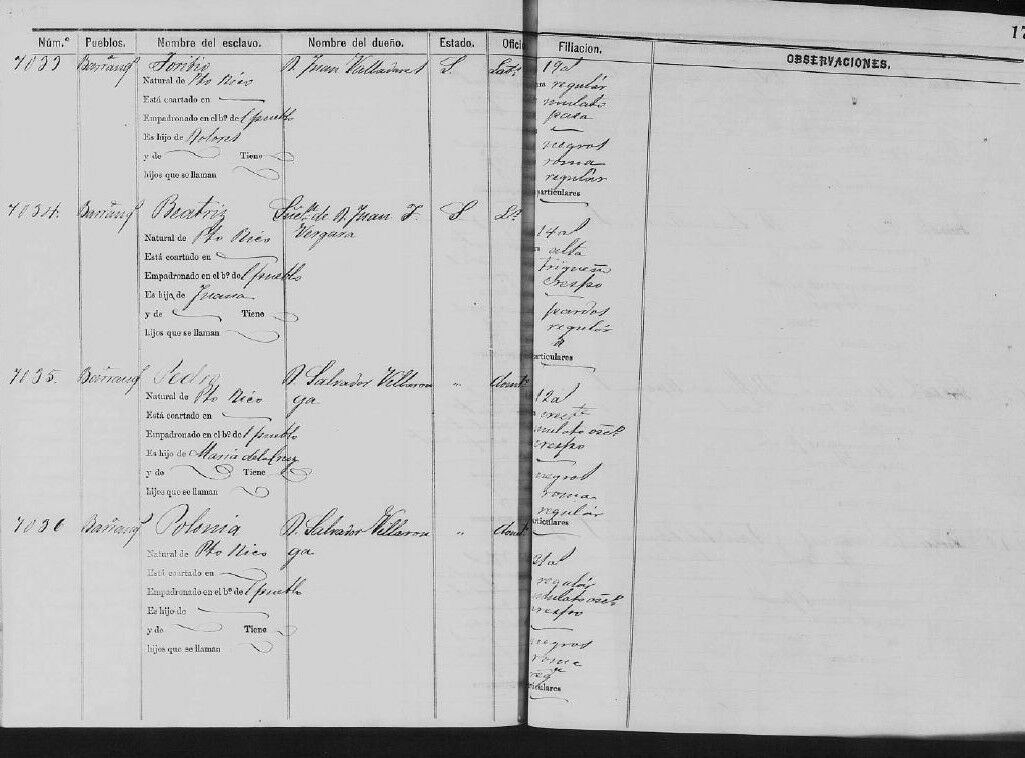 17
Núm.º Pueblos. Nombre del esclavo. Nombre del dueño. Estado. Ofici Filiacion. OBSERVACIONES.
7033 Barranqs Toribio D. Juan Valladares S. Labr 19 as
Natural de Pto Rico regular
Está coartado en mulato
Empadronado en el bº de l pueblo pasa
Es hijo de Dolores negros
y de Tiene roma
hijos que se llaman regular
articulares
7034. Barranqs Beatriz Sucn de D. Juan F. S Lª
Natural de Pto Rico Vergara 14 as
Está coartado en alta
Empadronado en el bº de l pueblo trigueña
Es hija de Juana crespo
y de Tiene pardos
hijos que se llaman regular
articulares
7035. Barranqs Pedro D. Salvador Villaron " domto
Natural de Pto Rico ga 12 as
Está coartado en crecte
Empadronado en el bº de l pueblo mulato oscº
Es hijo de Maria de la Cruz crespo
y de Tiene negros
hijos que se llaman roma
regular
rticulares
7036 Barranqs Polonia D. Salvador Villaron " domt
Natural de Pto Rico ga
Está coartado en 31 as
Empadronado en el bº de l pueblo regular
Es hijo de mulato oscº
y de Tiene crespo
hijos que se llaman negros
roma
regr
rticulares